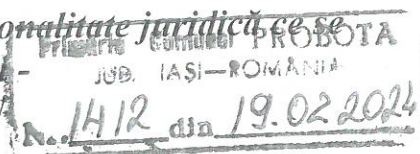 onalitate juridică ce se
Primăria Comunei PROBOTA
JUD. IAȘI—ROMÂNIA
No. 1412 din 19.02.2024